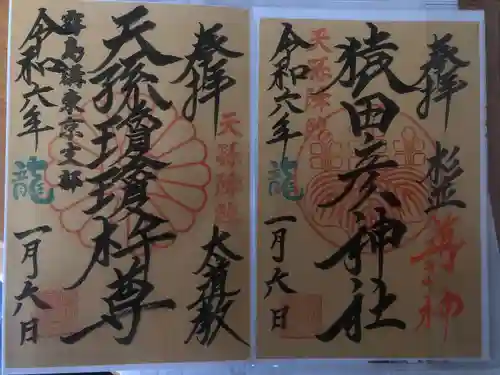 奉拝
天孫降臨
太道教
天孫瓊瓊杵尊
霧島講東京支部
令和六年
龍
一月六日
奉拝
杉並
導き神
猿田彦神社
天孫降臨
令和六年
龍
一月六日